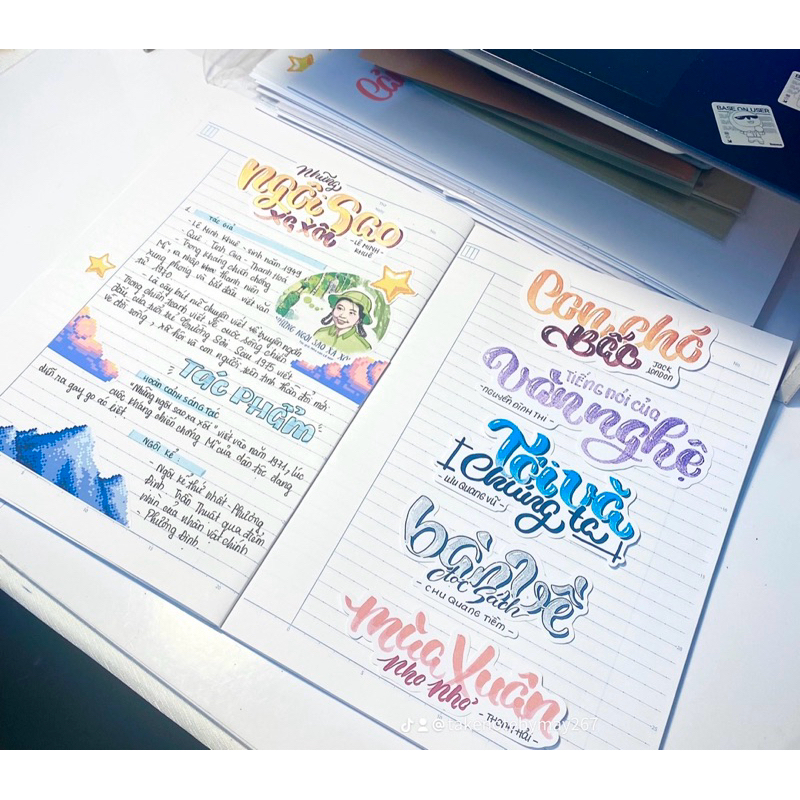 Những
Ngôi Sao
xa xôi
- LÊ MINH KHUÊ -
1. TÁC GIẢ
- Lê Minh Khuê - sinh năm 1949
- Quê: Tĩnh Gia - Thanh Hoá
- Trong kháng chiến chống
Mĩ, ra nhập thanh niên
xung phong và bắt đầu viết văn
từ 1970
- Là cây bút nữ chuyên viết về truyện ngắn
Trong chiến tranh viết về cuộc sống chiến
đấu của tuổi trẻ ở Trường Sơn. Sau 1975 viết
về đời sống, xã hội và con người trên tinh thần đổi mới.
NHỮNG NGÔI SAO XA XÔI
TÁC PHẨM
HOÀN CẢNH SÁNG TÁC
"Những ngôi sao xa xôi" viết vào năm 1971, lúc
cuộc kháng chiến chống Mĩ của dân tộc đang
diễn ra gay go ác liệt.
NGÔI KỂ
- Ngôi kể thứ nhất: Phương
Định. Trần Thuật qua điểm
nhìn của nhân vật chính
- Phương Định.
Con chó
Bấc
JACK
LONDON
TIẾNG NÓI CỦA
Văn nghệ
- NGUYỄN ĐÌNH THI -
Tôi và
chúng ta
- LƯU QUANG VŨ -
bàn về
đọc sách
- CHU QUANG TIỀM -
mùa xuân
Nho Nhỏ
- THANH HẢI -
BASE ON USER